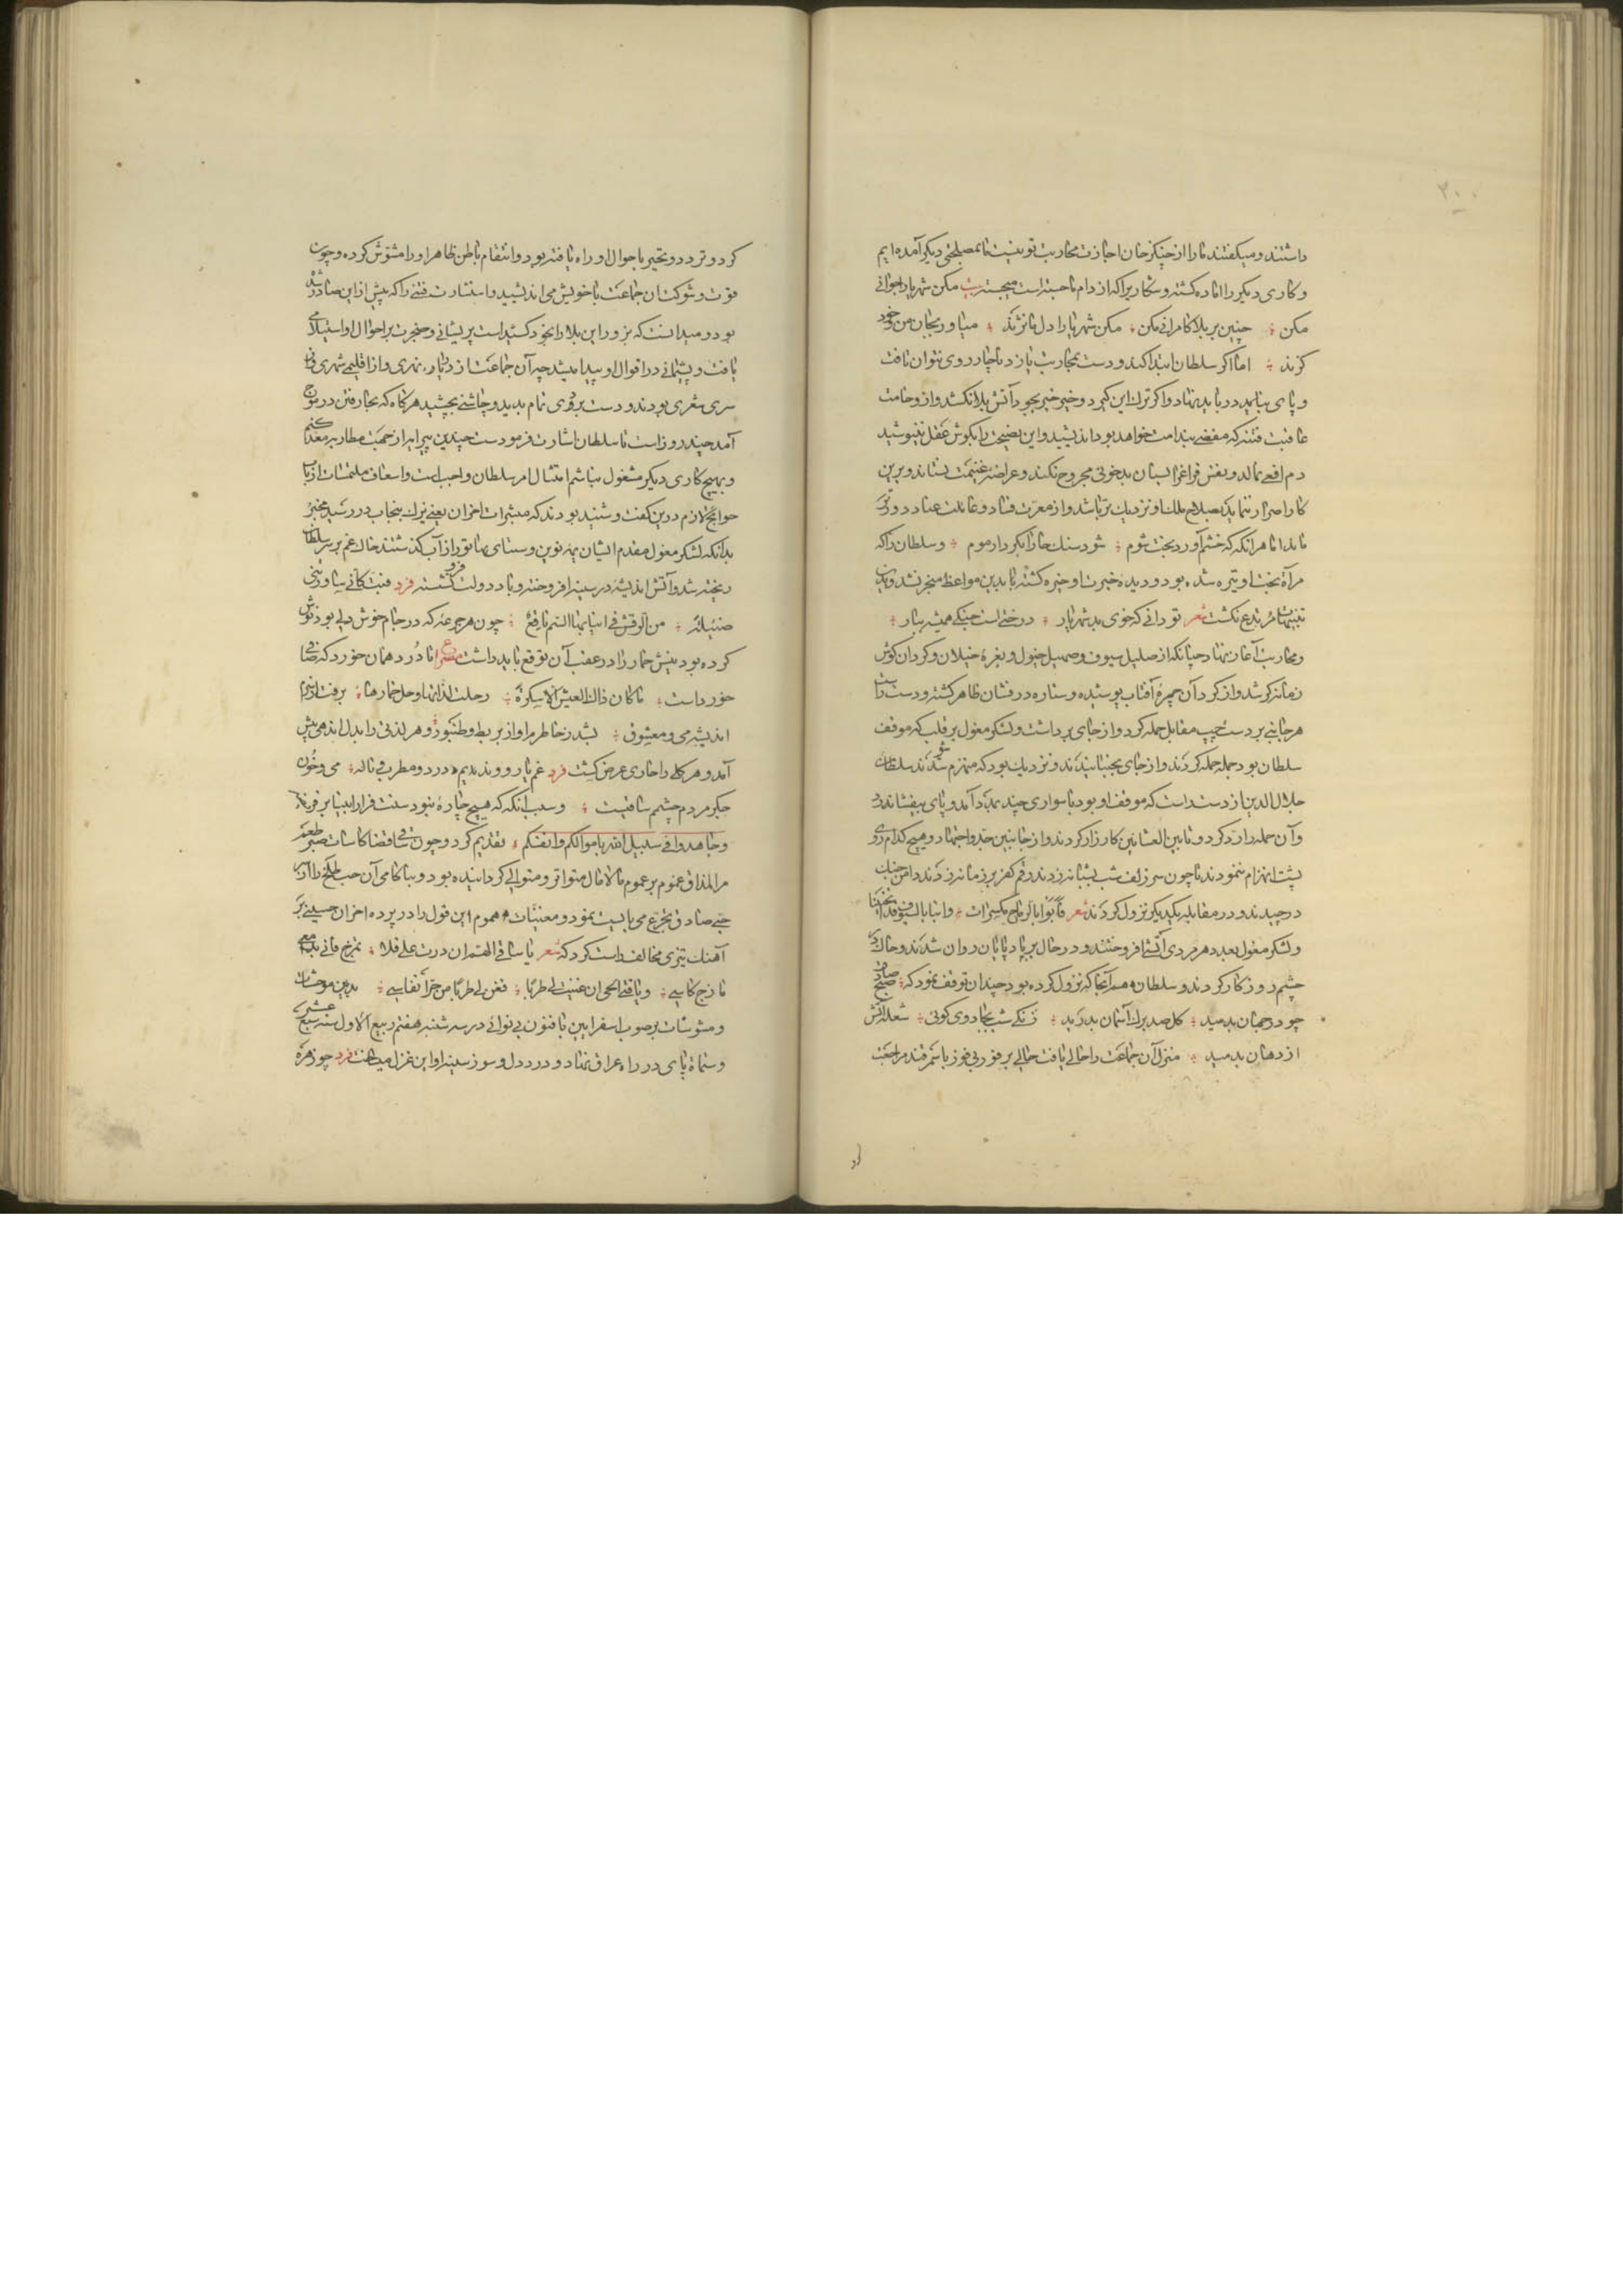 ۳۰۰
داشتند و میکفتند ما را از چنکز خان اجازت محاربت تو نیست ما بمصلحتی دیکر آمده‌ایم
و کاری دیکر را آماده کشته و شکاریرا که از دام ما جسته است میجسته بیت مکن شهریارا جوانی
مکن ؛ چنین بر بلا کامرانی مکن ؛ مکن شهریارا دل ما نژند ؛ میاور بجان من و خود
کزند ؛ اما اکر سلطان ابتدا کند و دست بمحاربت یازد ناچار روی نتوان تافت
و پای بباید در باید نهاد و اکر ترک این کیرد و خیر خیر بخود آتش بلا نکشد و از وخامت
عاقبت فتنه که مفضی بندامت خواهد بود اندیشید و این نصیحت را بکوش عقل بنیوشید
دم افعی نمالد و بفس فراغرا لسان بدخویی مجروح نکند و عراضه غنیمت بستاند و برین
کار اصرار ننماید بصلاح ملک او نزدیک‌تر باشد و از معرت فساد و غائلت عناد دورتر
ماند اما هر آنکه که خشم آورد بخت شوم ؛ شود سنک خارا بکردار موم ؛ و سلطان را که
مرآة بخت او تیره شده بود و دیده خبرت او خیره کشته با بدین مواعظ منزجر نشد و بدین
تنبیهات مرتدع نکشت شعر تو دانی که خوی بد شهریار ؛ درختی است جنکی همیشه ببار ؛
و محاربت آغاز نهاد چنانکه از صلیل سیوف و صهیل خیول و نعره خیلان و کردان کوش
زمانه کر شد و از کرد آن چهره آفتاب پوشیده و ستاره درفشان ظاهر کشته و دست راست
هر جانبی بر دست چپ مقابل حمله کرد و از جای برداشت و لشکر مغول بر قلب که موقف
سلطان بود جمله حمله کردند و از جای بجنبانیدند و نزدیک بود که منهزم شوند سلطان
جلال‌الدین از دست راست که موقف او بود با سواری چند بمدد آمد و پای بیفشاند
و آن حمله را رد کرد و تا بین العشائین کارزار کردند و از جانبین جد و اجتهاد و هیچ کدام روی
پشت انهزام ننمودند تا چون سر زلف شب بشانه زدند رقم کفر بر زمانه زدند دامن جنک
درچیدند و در مقابله یکدیکر نزول کردند شعر فآبوا بالرماح مکسرات ؛ و ابنا بالسیوف قد انحنینا
و لشکر مغول بعدد هر مردی آتشی افروختند و در حال بر باد پایان روان شدند و خاک در
چشم روزکار کردند و سلطان هم آنجا که نزول کرده بود چندان توقف نمود که ؛ صبح صادق
چو در جهان بدمید ؛ کل صد برک آسمان بدرید ؛ زنکی شب بجادوی کوئی ؛ شعله آتش
از دهان بدمید ؛ منزل آن جماعت را خالی یافت حالی بر فور بی فوز با سمرقند مراجعت
کرد و تردد و تحیر باحوال او راه یافته بود و انتقام باطن ظاهر او را مشوش کرده و چون
قوت و شوکت آن جماعت با خویش می‌اندیشید و استثارت فتنی را که پیش از این صادر شده
بود و میدانست که بزور این بلا را بخود کشیدست پریشانی و ضجرت بر احوال او استیلا می
یافت و پشیمانی در اقوال او پیدا میشد چه آن جماعت از دریای نهری و از اقلیمی شهری و از
سری شعری بودند و دست بردی تمام بدید و چاشنی بچشید هر کاه که بحار فتن در موج
آمد چند روزاست تا سلطان اشارت فرمودست چندین پیرایه از جهت مطاربه معد کنم
و بهیچ کاری دیکر مشغول نباشم امتثال امر سلطان واجب است و اسعاف ملتمسات ارباب
حوایج لازم درین کفت و شنید بودند که مبشرات احزان یعنی یزک پنجاب در رسید مخبر
بدانکه لشکر مغول مقدم ایشان یمه نوین و سبتای بهادر از آب کذشتند خاک غم بر سر سلطان
ریخته شد و آتش اندیشه در سینه افروخته و باد دولت فرو نشسته فرد فبت کأنی ساورتنی
ضئیلة ؛ من الرقش فی انیابها السم ناقع ؛ چون هر جرعه که در جام خوش دلی بود نوش
کرده بود نیش خمار را در عقب آن توقع باید داشت مصراع تا دُرد همان خورد که صافی
خورداست ؛ ما کان ذاک العیش الا سکرة ؛ رحلت لذاتها و حل خمارها ؛ برفت از سرم
اندیشه می و معشوق ؛ بشد ز خاطرم آواز بربط و طنبور ؛ و هر لذتی را بدل اندهی پیش
آمد و هر کلی را خاری عرض کشت فرد غم یار و و ندیم درد و مطرب ناله ؛ می و خون
جکر مردم چشم ساقیست ؛ و سبب آنکه که هیچ چاره نبود سنت فرار انبیا بر فریضه
و جاهدوا فی سبیل الله باموالکم و انفسکم ؛ تقدیم کرد و چون ساقی قضا کاسات صبر طعم
مر المذاق غموم بر عموم مالامال متواتر و متوالی کردانیده بود و بناکامی آن حب تلخ را از راه
جی صادق تجرع می‌بایست نمود و مغنیان هموم این قول را در پرده احزان حسینی بر
آهنک تیزی مخالف راست کرد که شعر یا ساقی الغم ان درت علی فلا ؛ تمزج فانی بدمعی
مازج کاسی ؛ و یا فتی الحی ان غنیت لی طربا ؛ فغن لی طربا من حر انفاسی ؛ بدین موحشات
و مشوشات بر صوب اسفراین با فنون بی‌نوائی در سه شنبه هفتم ربیع الاول سنه سبع عشر
و ستماة پای در راه عراق نهاد و درد دل و سوز سینه او این غزل میساخت فرد چو زهره